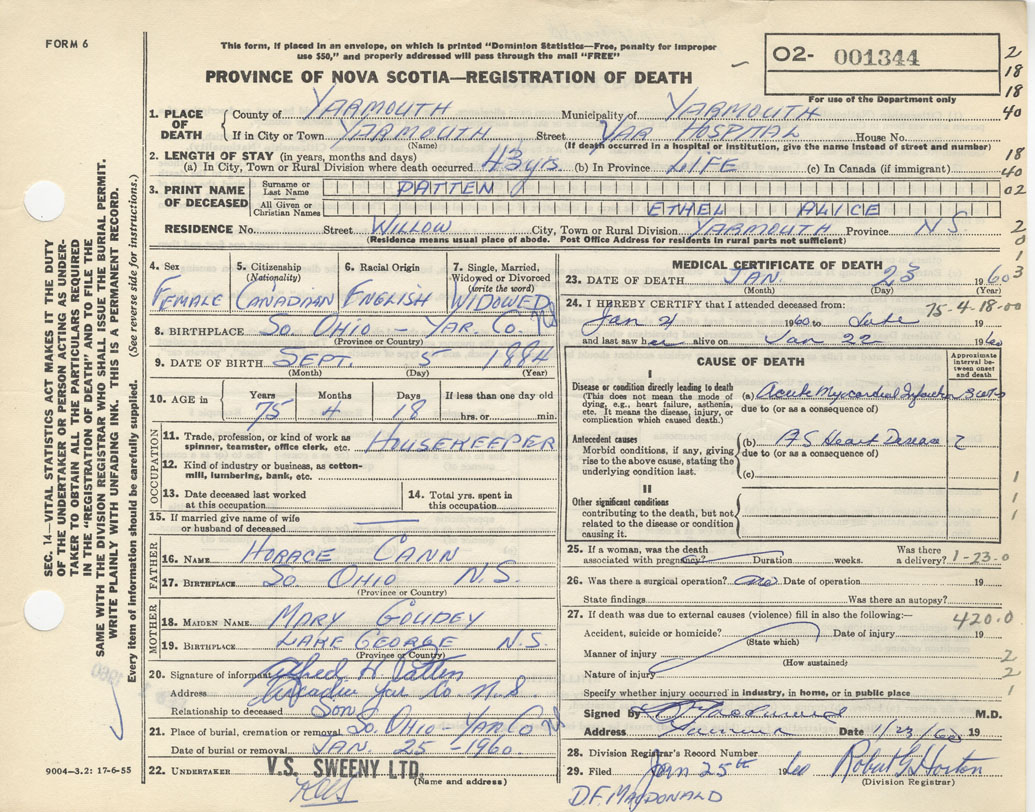 FORM 6
This form, if placed in an envelope, on which is printed "Dominion Statistics—Free, penalty for improper
use $50," and properly addressed will pass through the mail "FREE"
PROVINCE OF NOVA SCOTIA—REGISTRATION OF DEATH
O2- 001344
For use of the Department only
2
18
18
40
18
40
02
2
0
1
3
SEC. 14—VITAL STATISTICS ACT MAKES IT THE DUTY
OF THE UNDERTAKER OR PERSON ACTING AS UNDER-
TAKER TO OBTAIN ALL THE PARTICULARS REQUIRED
IN THE "REGISTRATION OF DEATH" AND TO FILE THE
SAME WITH THE DIVISION REGISTRAR WHO SHALL ISSUE THE BURIAL PERMIT.
WRITE PLAINLY WITH UNFADING INK. THIS IS A PERMANENT RECORD.
Every item of information should be carefully supplied. (See reverse side for instructions.)
1. PLACE OF DEATH
County of YARMOUTH Municipality of YARMOUTH
If in City or Town YARMOUTH Street YAR HOSPITAL House No.
(Name) (If death occurred in a hospital or institution, give the name instead of street and number)
2. LENGTH OF STAY (in years, months and days)
(a) In City, Town or Rural Division where death occurred 43 yrs. (b) In Province LIFE (c) In Canada (if immigrant)
3. PRINT NAME OF DECEASED
Surname or Last Name PATTEN
All Given or Christian Names ETHEL ALICE
RESIDENCE No. Street WILLOW City, Town or Rural Division YARMOUTH Province N.S.
(Residence means usual place of abode. Post Office Address for residents in rural parts not sufficient)
4. Sex
FEMALE
5. Citizenship
(Nationality)
CANADIAN
6. Racial Origin
ENGLISH
7. Single, Married,
Widowed or Divorced
(write the word)
WIDOWED
8. BIRTHPLACE SO. OHIO - YAR. CO. NS
(Province or Country)
9. DATE OF BIRTH SEPT. 5 1884
(Month) (Day) (Year)
10. AGE in
Years Months Days If less than one day old
75 4 18 hrs. or min.
OCCUPATION
11. Trade, profession, or kind of work as
spinner, teamster, office clerk, etc. HOUSEKEEPER
12. Kind of industry or business, as cotton-
mill, lumbering, bank, etc.
13. Date deceased last worked
at this occupation
14. Total yrs. spent in
this occupation
15. If married give name of wife
or husband of deceased
FATHER
16. NAME HORACE CANN
17. BIRTHPLACE SO. OHIO N.S.
(Province or Country)
MOTHER
18. MAIDEN NAME MARY GOUDEY
19. BIRTHPLACE LAKE GEORGE N.S.
(Province or Country)
20. Signature of informant Alfred H. Patten
Address Arcadia Yar Co N.S.
Relationship to deceased Son
21. Place of burial, cremation or removal SO. OHIO - YAR CO NS
Date of burial or removal JAN. 25 - 1960.
22. UNDERTAKER V.S. SWEENY LTD.
(Name and address)
9004—3.2: 17-6-55
MEDICAL CERTIFICATE OF DEATH
23. DATE OF DEATH JAN 23 1960
(Month) (Day) (Year)
75-4-18-00
24. I HEREBY CERTIFY that I attended deceased from:
Jan 21 1960 to date 19
and last saw her alive on Jan 22 1960
CAUSE OF DEATH
Approximate
interval between
onset
and death
I
Disease or condition directly leading to death
(This does not mean the mode of
dying, e.g., heart failure, asthenia,
etc. It means the disease, injury, or
complication which caused death.)
(a) Acute Myocardial Infarction
due to (or as a consequence of)
Antecedent causes
Morbid conditions, if any, giving
rise to the above cause, stating the
underlying condition last.
(b) AS Heart Disease ?
due to (or as a consequence of)
(c)
II
Other significant conditions
contributing to the death, but not
related to the disease or condition
causing it.
1
1
1
25. If a woman, was the death
associated with pregnancy? Duration weeks. Was there
a delivery?
1-23-0
26. Was there a surgical operation? no Date of operation 19
State findings Was there an autopsy?
27. If death was due to external causes (violence) fill in also the following:—
420.0
Accident, suicide or homicide? Date of injury 19
(State which)
Manner of injury
(How sustained)
2
Nature of injury
2
Specify whether injury occurred in industry, in home, or in public place
1
Signed by M.D.
Address Date 1/23/60 19
28. Division Registrar's Record Number
29. Filed Jan 25th 1960 Robert G Horton
(Division Registrar)
D.F. MacDONALD